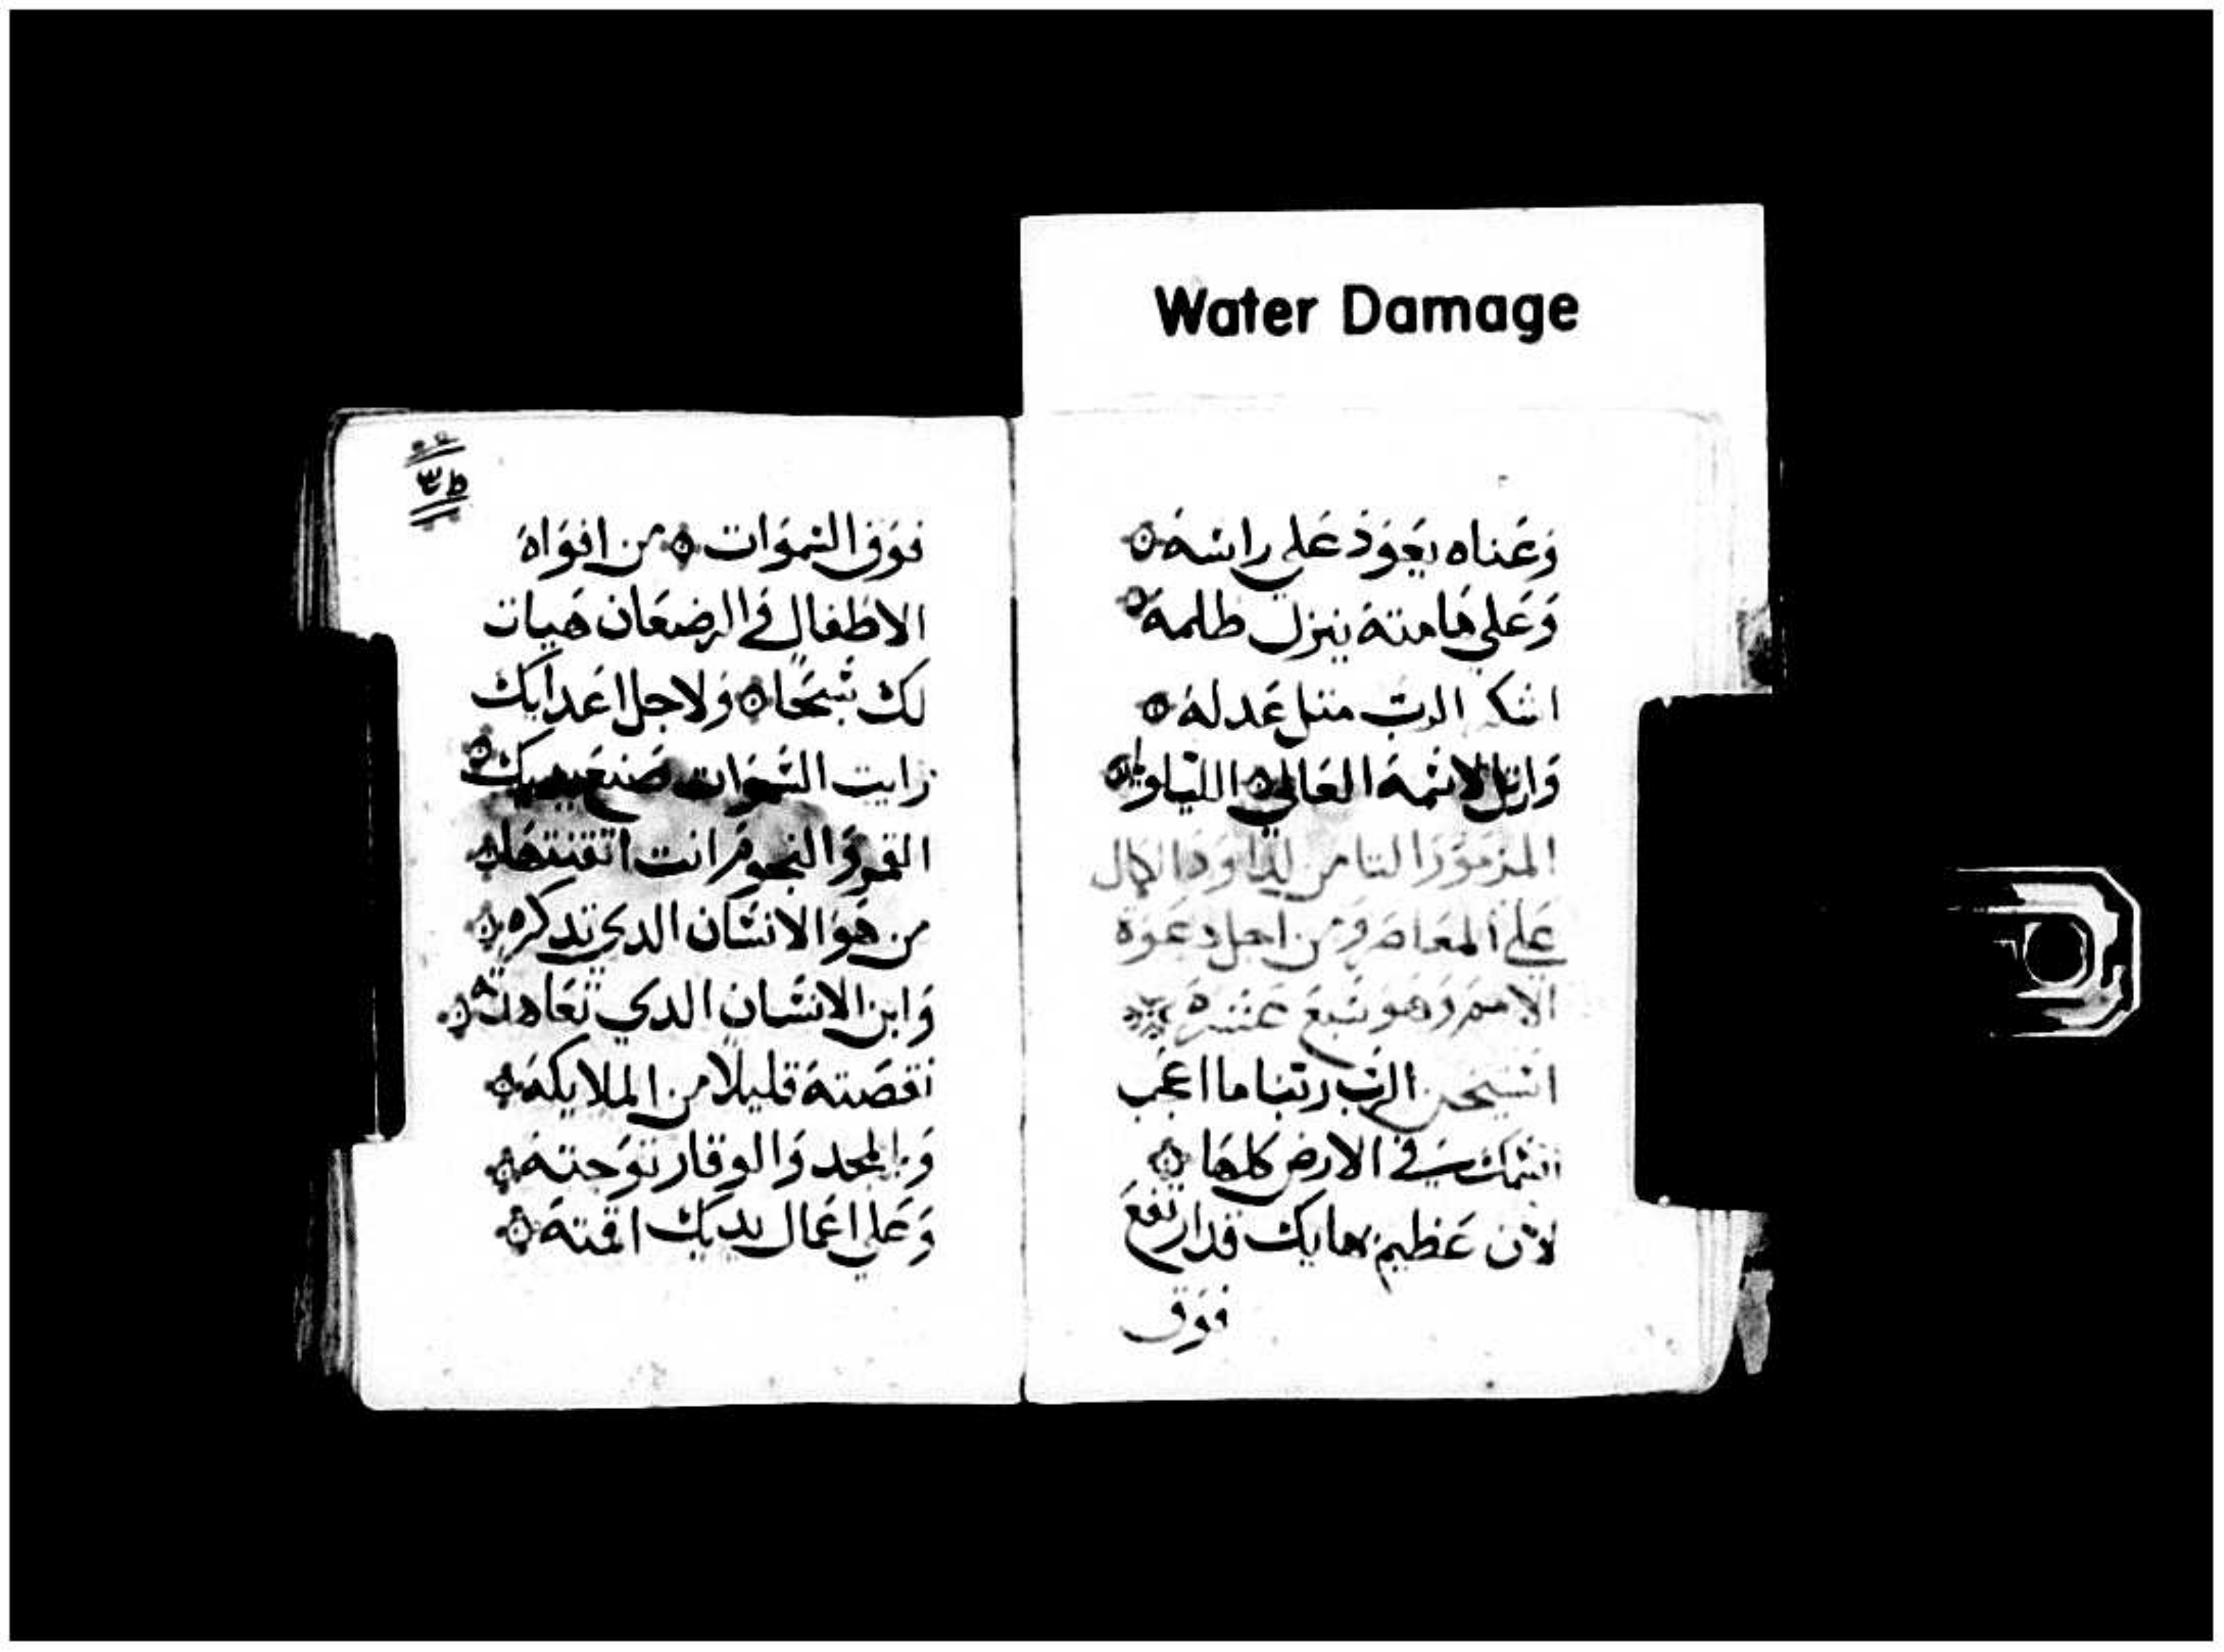 Water Damage
وعناه يعود على راسه
وعلي هامته ينزل ظلمه
اشكر الرب مثل عدله
وارتل لاسمه العالي الليلويا
المزمور الثامن لداود الكمال
علي المعاصر ومن اجل دعوة
الامم وهو تسع عشره
الرب ربنا ما اعجب
اسمك في الارض كلها
لان عظيم بهايك قد ارتفع
فوق
فوق السموات من افواه
الاطفال و الرضعان هيات
لك سبحا ولاجل اعدايك
رايت السموات صنع يديك
القمر والنجوم انت اتقنتها
من هو الانسان الدي تدكره
وابن الانسان الدي تعاهدته
نقصته قليلا من الملايكه
وبالمجد والوقار توجته
وعلي اعمال يديك اقمته